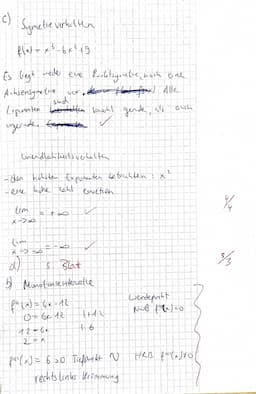 c) Symmetrieverhalten
f(x) = x³-6x²+9
Es liegt weder eine Punktsymmetrie, noch eine
Achsensymmetrie vor. Alle
Exponenten sind sowohl gerade, als auch
ungerade.
Unendlichkeitsverhalten
- den höchsten Exponenten betrachten: x³
- eine hohe Zahl einsetzen
lim = +∞
x->∞
4/4
lim = -∞
x->-∞
d) s. Blatt
3/3
b) Monotonieintervalle
f''(x) = 6x-12 Wendepunkt
0 = 6x-12 |+12 NwB f''(x)=0
12 = 6x |:6
2 = x
f'''(x) = 6 > 0 HRB f'''(x)≠0
rechts links Krümmung